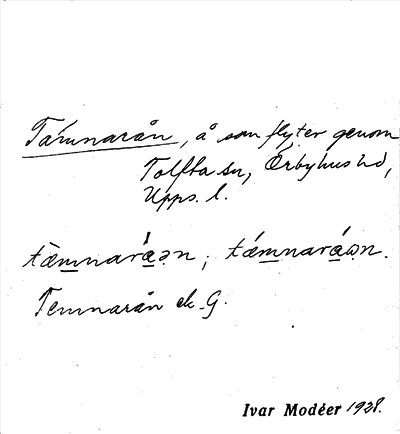 Tämnarån, å som flyter genom
Tolfta sn, Örbyhus hd,
Upps. l.
tæ̀m̲nará̲ən; tǽm̲nará̲ωn.
Temnarån ek. G.
Ivar Modéer 1928.